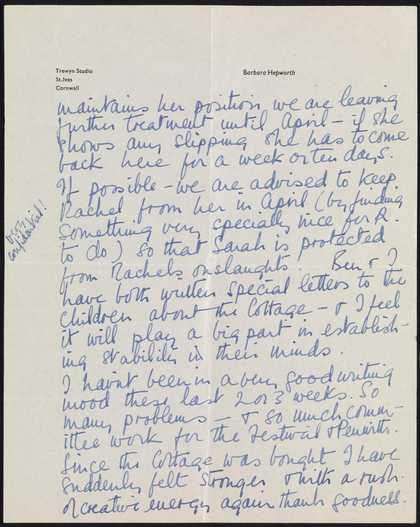 Trewyn Studio
St.Ives
Cornwall
Barbara Hepworth
maintains her position, we are leaving
further treatment until April – if she
shows any slipping she has to come
back here for a week or ten days.
If possible – we are advised to keep
Rachel from her in April (by finding
something very specially nice for R.
to do) so that Sarah is protected
from Rachels onslaughts. Ben & I
have both written special letters to the
children about the Cottage – & I feel
it will play a big part in establish-
ing stability in their minds.
I havnt been in a very good writing
mood these last 2 or 3 weeks. So
many problems – & so much comm-
ittee work for the Festival & Penwith.
Since the Cottage was bought I have
suddenly felt stronger & with a rush
of creative energy again thank goodness.
confidential!